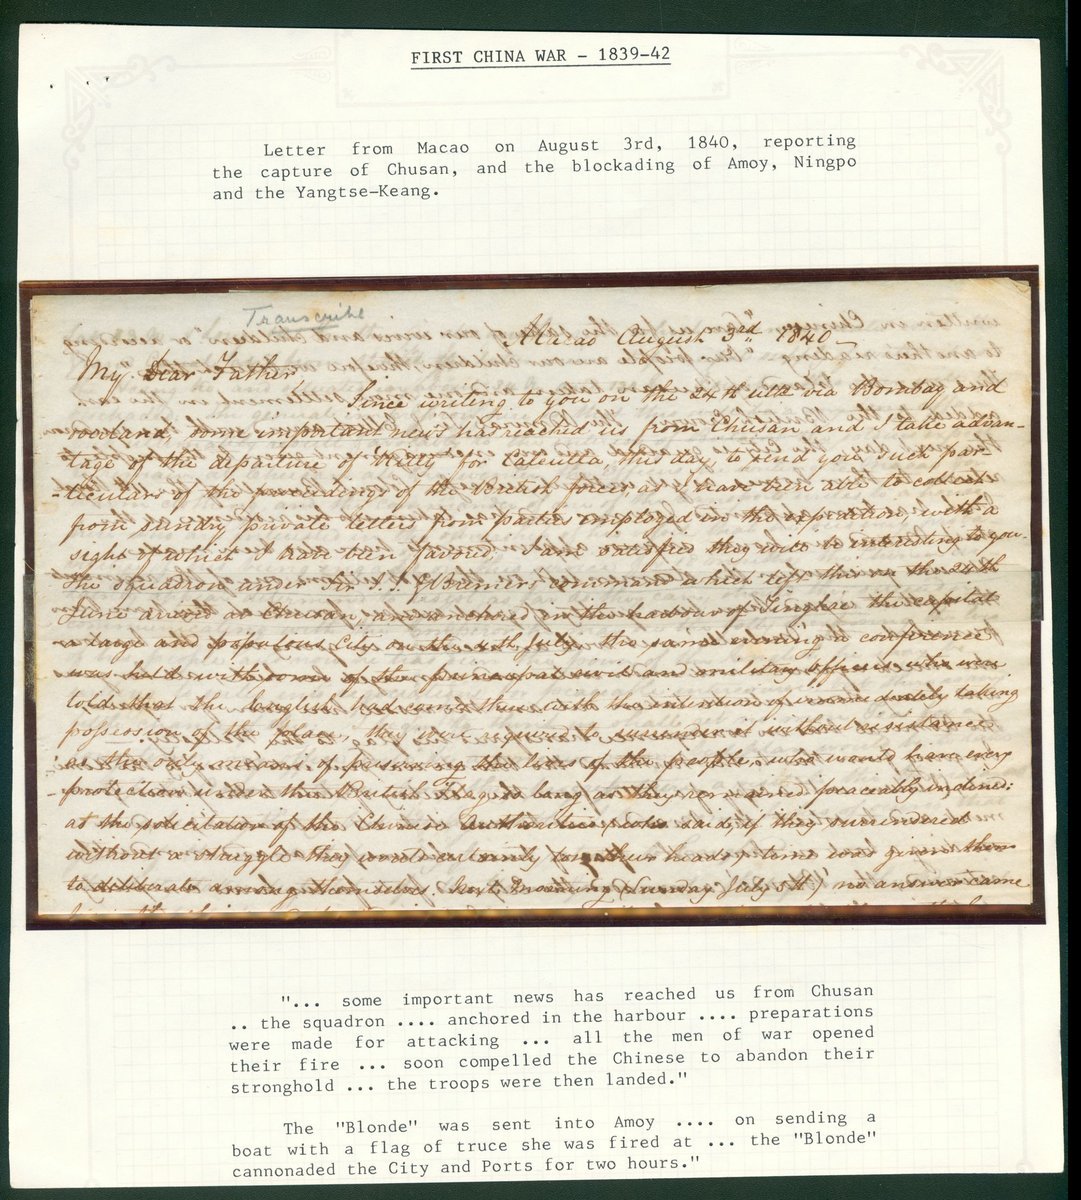 FIRST CHINA WAR - 1839-42
Letter from Macao on August 3rd, 1840, reporting
the capture of Chusan, and the blockading of Amoy, Ningpo
and the Yangtse-Keang.
Transcribe
Macao August 3rd 1840
My Dear Father,
Since writing to you on the 24th ulto via Bombay and
some important news has reached us from Chusan and I take advan-
tage of the departure of Kitty for Calcutta, this day, to send you such par-
-ticulars of the proceedings of the British forces, as I have been able to collect
from sundry private letters from parties employed in the expedition, with a
sight of which I have been favored I am satisfied they will be interesting to you.
The Squadron under Sir J. J. G Bremers command which left this on the 24th
June arrived at Chusan, and anchored in the harbour of Tinghae the capital
a large and populous City on the 4th July. the same evening a conference
was held with some of the principal civil and military officers who were
told that the English had come there with the intention of immediately taking
possession of the place, they were required to surrender it without resistance
as the only means of preserving the lives of the people, who would have every
protection under the British Flag so long as they remained peaceably inclined:
at the solicitation of the Chinese Authorities, who said, if they surrendered
without a struggle they would certainly lose their heads, time was given them
to deliberate among themselves. Next morning (Sunday July 5th) no answer came
"... some important news has reached us from Chusan
.. the squadron .... anchored in the harbour .... preparations
were made for attacking ... all the men of war opened
their fire ... soon compelled the Chinese to abandon their
stronghold ... the troops were then landed."
The "Blonde" was sent into Amoy .... on sending a
boat with a flag of truce she was fired at ... the "Blonde"
cannonaded the City and Ports for two hours."